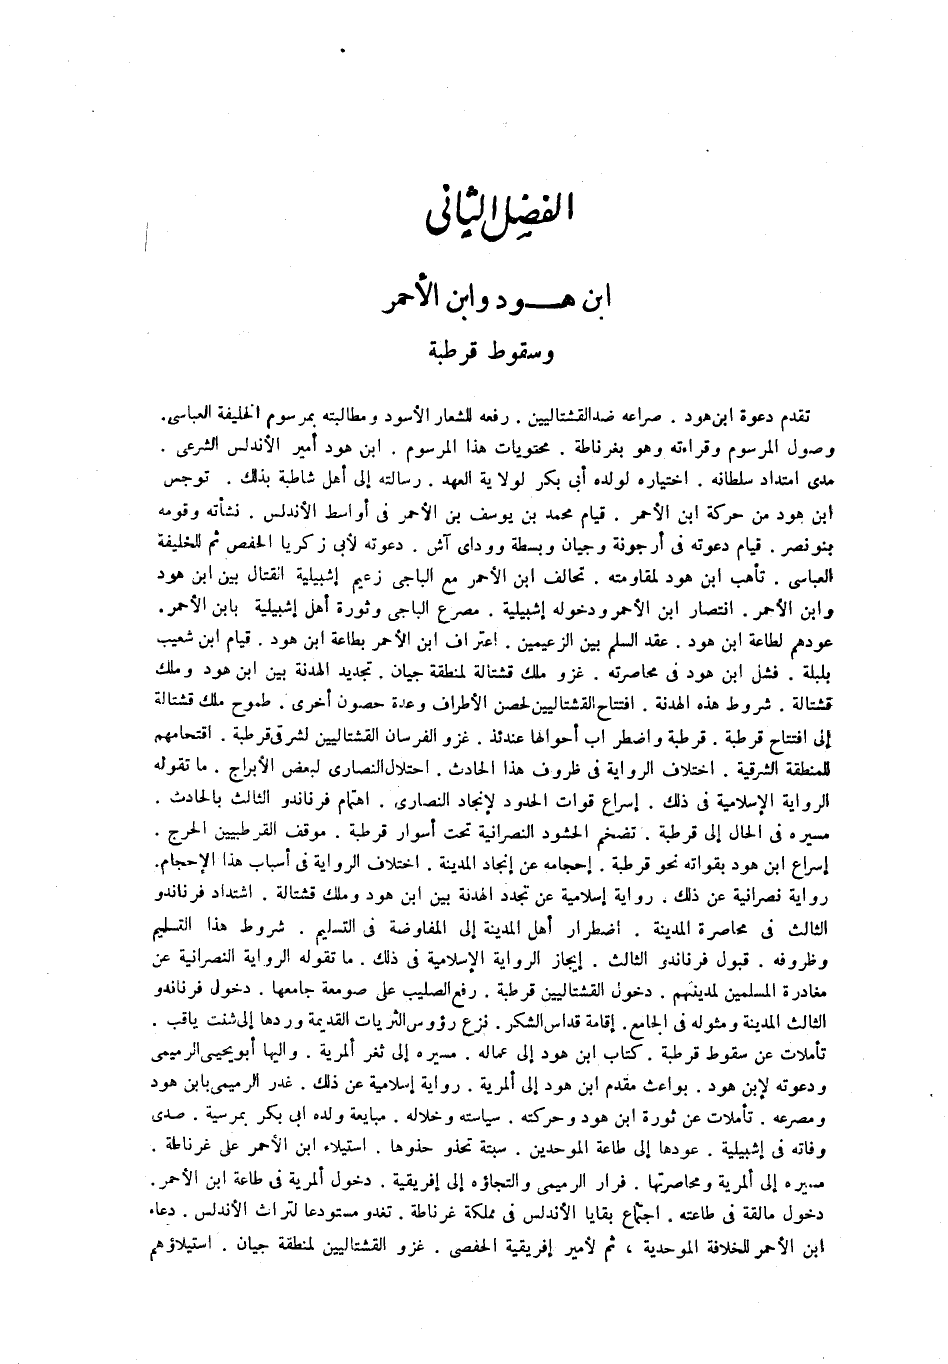 الفصل الثانى
ابن هـــود وابن الأحمر
وسقوط قرطبة
تقدم دعوة ابن هود . صراعه ضد القشتاليين . رفعه للشعار الأسود ومطالبته بمرسوم الخليفة العباسى .
وصول المرسوم وقراءته وهو بغرناطة . محتويات هذا المرسوم . ابن هود أمير الأندلس الشرعى .
مدى امتداد سلطانه . اختياره لولده أبى بكر لولاية العهد . رسالته إلى أهل شاطبة بذلك . توجس
ابن هود من حركة ابن الأحمر . قيام محمد بن يوسف بن الأحمر فى أواسط الأندلس . نشأته وقومه
بنو نصر . قيام دعوته فى أرجونة وجيان وبسطة ووداى آش . دعوته لأبى زكريا الحفص ثم للخليفة
العباسى . تأهب ابن هود لمقاومته . تحالف ابن الأحمر مع الباجى زعيم إشبيلية القتال بين ابن هود
وابن الأحمر . انتصار ابن الأحمر ودخوله إشبيلية . مصرع الباجى وثورة أهل إشبيلية بابن الأحمر .
عودهم لطاعة ابن هود . عقد السلم بين الزعيمين . اعتراف ابن الأحمر بطاعة ابن هود . قيام ابن شعيب
بلبلة . فشل ابن هود فى محاصرته . غزو ملك قشتالة لمنطقة جيان . تجديد الهدنة بين ابن هود وملك
قشتالة . شروط هذه الهدنة . افتتاح القشتاليين لحصن الأطراف وعدة حصون أخرى . طموح ملك قشتالة
إلى افتتاح قرطبة . قرطبة واضطراب أحوالها عندئذ . غزو الفرسان القشتاليين لشرقى قرطبة . اقتحامهم
للمنطقة الشرقية . اختلاف الرواية فى ظروف هذا الحادث . احتلال النصارى لبعض الأبراج . ما تقوله
الرواية الإسلامية فى ذلك . إسراع قوات الحدود لإنجاد النصارى . اهتمام فرناندو الثالث بالحادث .
مسيره فى الحال إلى قرطبة . تضخم الحشود النصرانية تحت أسوار قرطبة . موقف القرطبيين الحرج .
إسراع ابن هود بقواته نحو قرطبة . إحجامه عن إنجاد المدينة . اختلاف الرواية فى أسباب هذا الإحجام .
رواية نصرانية عن ذلك . رواية إسلامية عن تجدد الهدنة بين ابن هود وملك قشتالة . اشتداد فرناندو
الثالث فى محاصرة المدينة . اضطرار أهل المدينة إلى المفاوضة فى التسليم . شروط هذا التسليم
وظروفه . قبول فرناندو الثالث . إيجاز الرواية الإسلامية فى ذلك . ما تقوله الرواية النصرانية عن
مغادرة المسلمين لمدينتهم . دخول القشتاليين قرطبة . رفع الصليب على صومعة جامعها . دخول فرناندو
الثالث المدينة ومثوله فى الجامع . إقامة قداس الشكر . نزع رؤوس الثريات القديمة وردها إلى شنت ياقب .
تأملات عن سقوط قرطبة . كتاب ابن هود إلى عماله . مسيره إلى ثغر ألمرية . واليها أبو يحيى الرميمى
ودعوته لابن هود . بواعث مقدم ابن هود إلى ألمرية . رواية إسلامية عن ذلك . غدر الرميمى بابن هود
ومصرعه . تأملات عن ثورة ابن هود وحركته . سياسته وخلاله . مبايعة ولده ابى بكر بمرسية . صدى
وفاته فى إشبيلية . عودها إلى طاعة الموحدين . سبتة تحذو حذوها . استيلاء ابن الأحمر على غرناطة .
مسيره إلى ألمرية ومحاصرتها . فرار الرميمى والتجاؤه إلى إفريقية . دخول ألمرية فى طاعة ابن الأحمر .
دخول مالقة فى طاعته . اجتماع بقايا الأندلس فى مملكة غرناطة . تغدو مستودعا لتراث الأندلس . دعاء
ابن الأحمر للخلافة الموحدية ، ثم لأمير إفريقية الحفصى . غزو القشتاليين لمنطقة جيان . استيلاؤهم